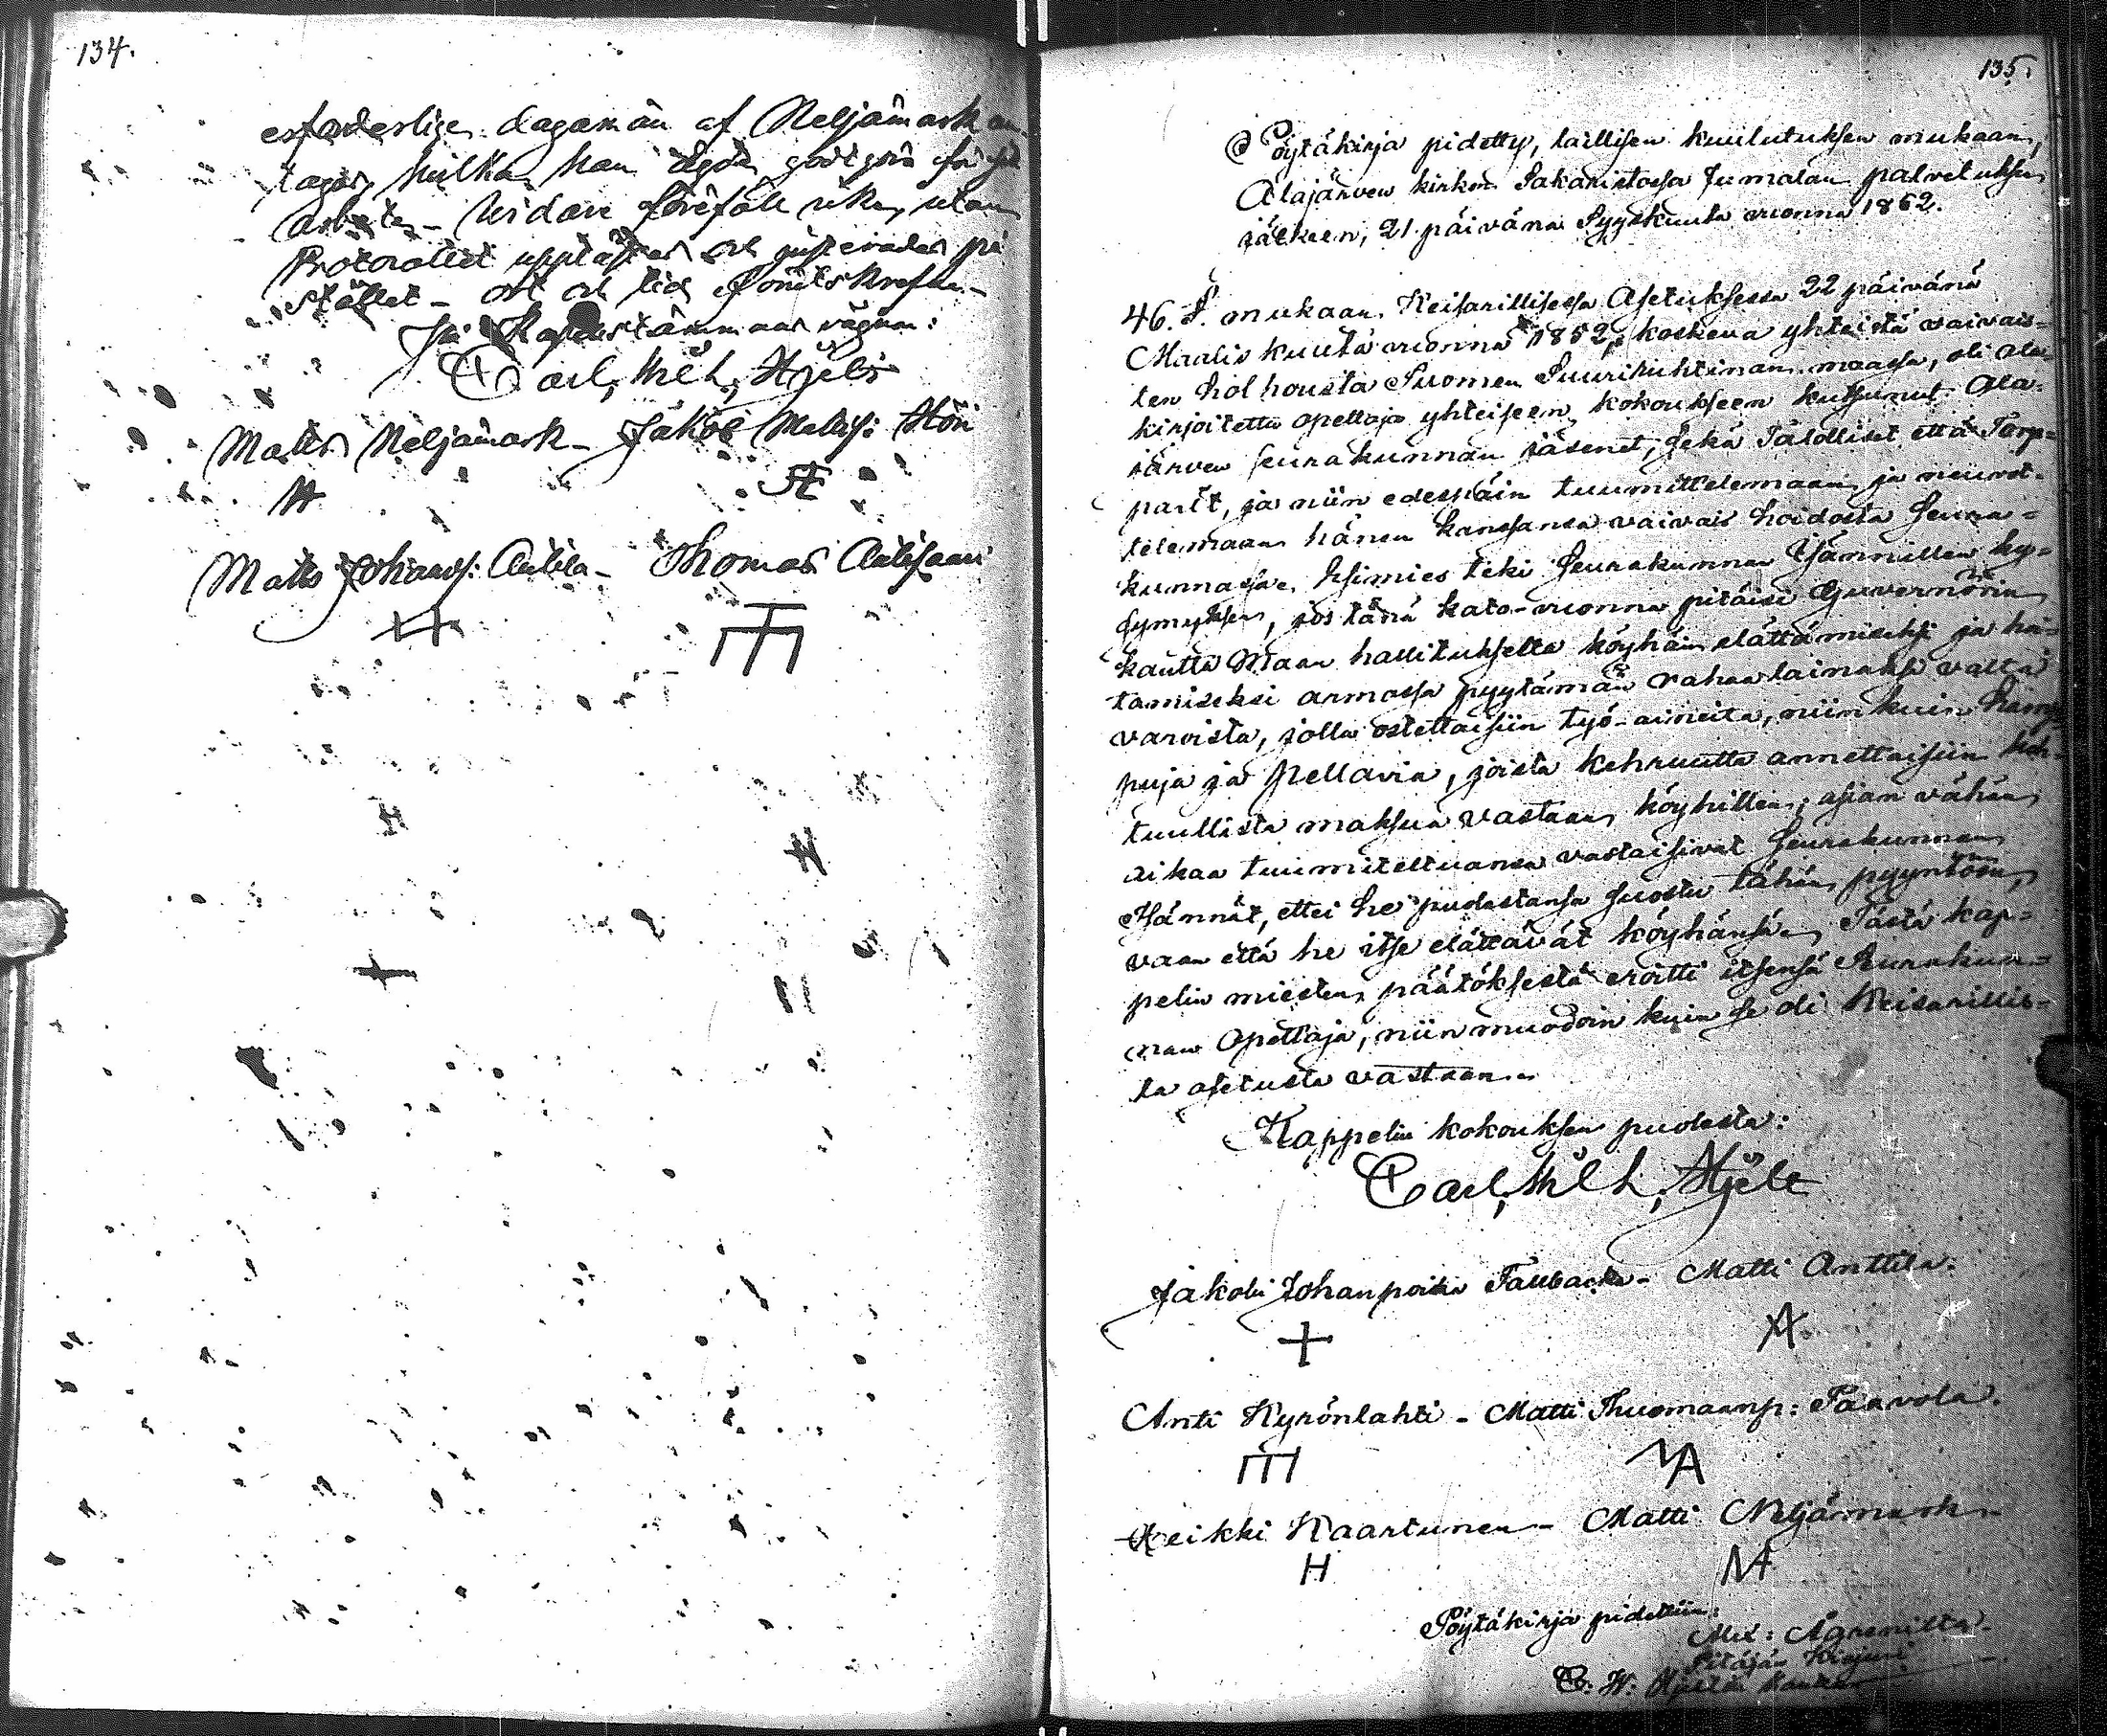 134.
erforderlige dagsmän af Neljämark an-
tagas, hvilka han ägde godtgöra för sitt
arbete – Widare föreföll icke, utan
Protocollet upplästes och justerades på
stället – ort och tid förutskrefne –
På Kapellstämmans vägnar:
Carl, Wilh, Hjelt
Matts Neljämark – Jakob Matss: Höri
Matts Johanss: Antila – Thomas Antisaari
135.
Pöytäkirja pidetty, laillisen kuulutuksen mukaan,
Alajärven kirkon Sakaristossa Jumalan palveluksen
jälkeen, 21 päivänä Syyskuuta vuonna 1862.
46. §. mukaan Keisarillisessa Asetuksessa 22 päivänä
Maaliskuuta vuonna 1852, koskeva yhteistä vaivais-
ten holhousta Suomen Suuriruhtinan maassa, oli alle-
kirjoitettu opettaja yhteiseen kokoukseen kutsunut Ala-
järven seurakunnan jäsenet, sekä Talolliset että Torp-
parit, ja niin edespäin tuumittelemaan ja neuvot-
telemaan hänen kanssansa vaivais hoidosta seura-
kunnassa. Esimies teki seurakunnan Isännillen ky-
symyksen, jos tänä kato-vuonna pitäisi Guvernörin
kautta Maan hallitukselta köyhäin elättämiseksi ja hoi-
tamiseksi armossa pyytämän rahaa lainaksi valta
varoista, jolla ostettaisiin työ-aineita, niin kuin hamp-
puja ja pellavia, joista kehruutta annettaisiin koh-
tuullista maksua vastaan köyhillen; asian vähän
aikaa tuumiteltuansa vastaisivat seurakunnan
Isännät, ettei he puolestansa suostu tähän pyyntöön,
vaan että he itse elättävät köyhänsä. Tästä kap-
pelin miesten päätöksestä eroitti itsensä Seurakun-
nan Opettaja, niin muodoin kuin se oli Keisarillis-
ta asetusta vastaan.
Kappelin kokouksen puolesta:
Carl, Wilh, Hjelt
Jakobi Johanpoika Tallbacka – Matti Anttila.
Anti Kyrönlahti – Matti Thuomaanp: Paavola.
Heikki Kaartunen – Matti Neljämark
H
Pöytäkirja pidettiin:
Pitäjän Kirjuri